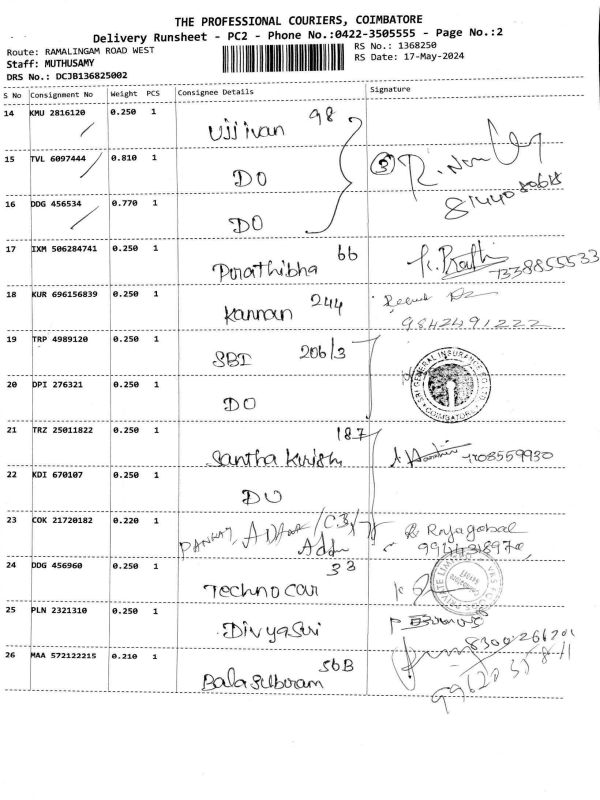 THE PROFESSIONAL COURIERS, COIMBATORE
Delivery Runsheet - PC2 - Phone No.:0422-3505555 - Page No.:2
Route: RAMALINGAM ROAD WEST
RS No.: 1368250
Staff: MUTHUSAMY
RS Date: 17-May-2024
DRS No.: DCJB136825002
S No Consignment No Weight PCS Consignee Details Signature
14 KMU 2816120 0.250 1 Ujjivan 98
15 TVL 6097444 0.810 1 DO
16 DDG 456534 0.770 1 DO
17 IXM 506284741 0.250 1 Prathibha 66
7338855533
18 KUR 696156839 0.250 1 Kannan 244
9842491222
19 TRP 4989120 0.250 1 SBI 206/3
SBI GENERAL INSURANCE CO LTD COIMBATORE
20 DPI 276321 0.250 1 DO
21 TRZ 25011822 0.250 1 Santha Krish 187
22 KDI 670107 0.250 1 DO
23 COK 21720182 0.220 1 PANKAJ
Rajagobal
24 DDG 456960 0.250 1 Techno car 33
25 PLN 2321310 0.250 1 Divyasri
26 MAA 572122215 0.210 1 Balasubram 56B